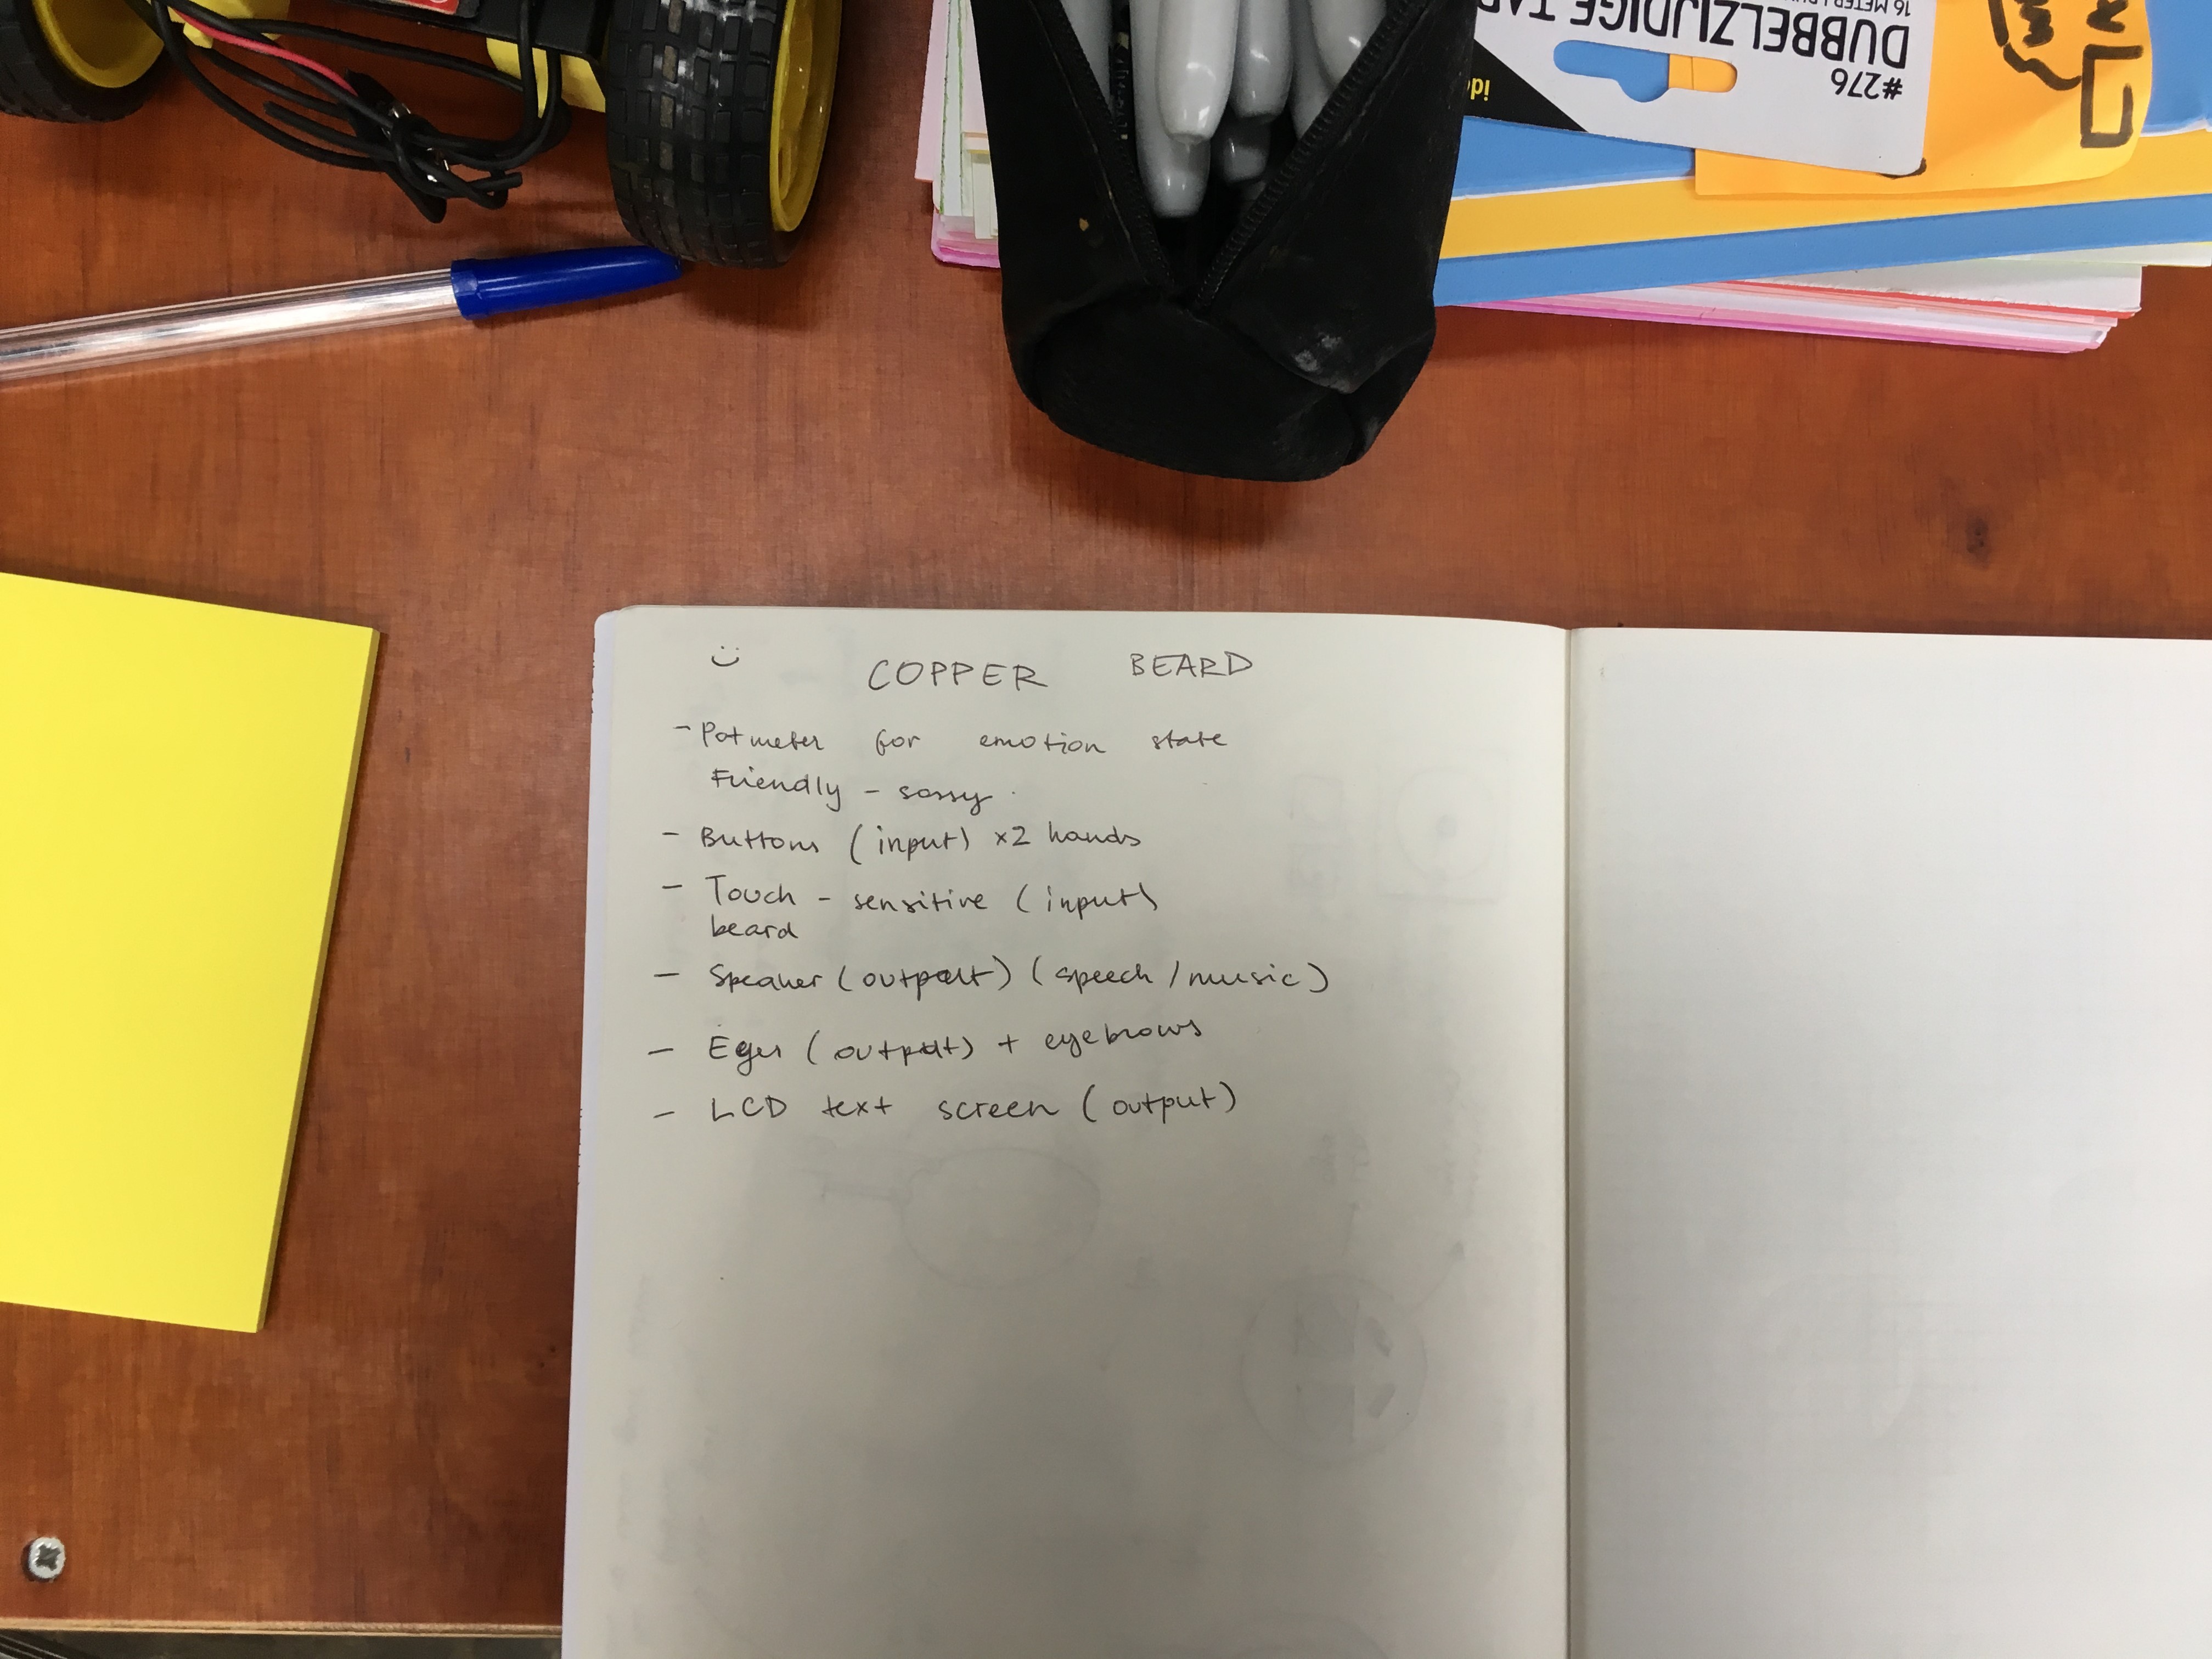 #276
DUBBELZIJDIGE TAP
16 METER
COPPER BEARD
- Potmeter for emotion state
Friendly - sassy
- Buttons (input) x2 hands
- Touch - sensitive (input)
beard
- Speaker (output) (speech / music)
- Eyes (output) + eyebrows
- LCD text screen (output)